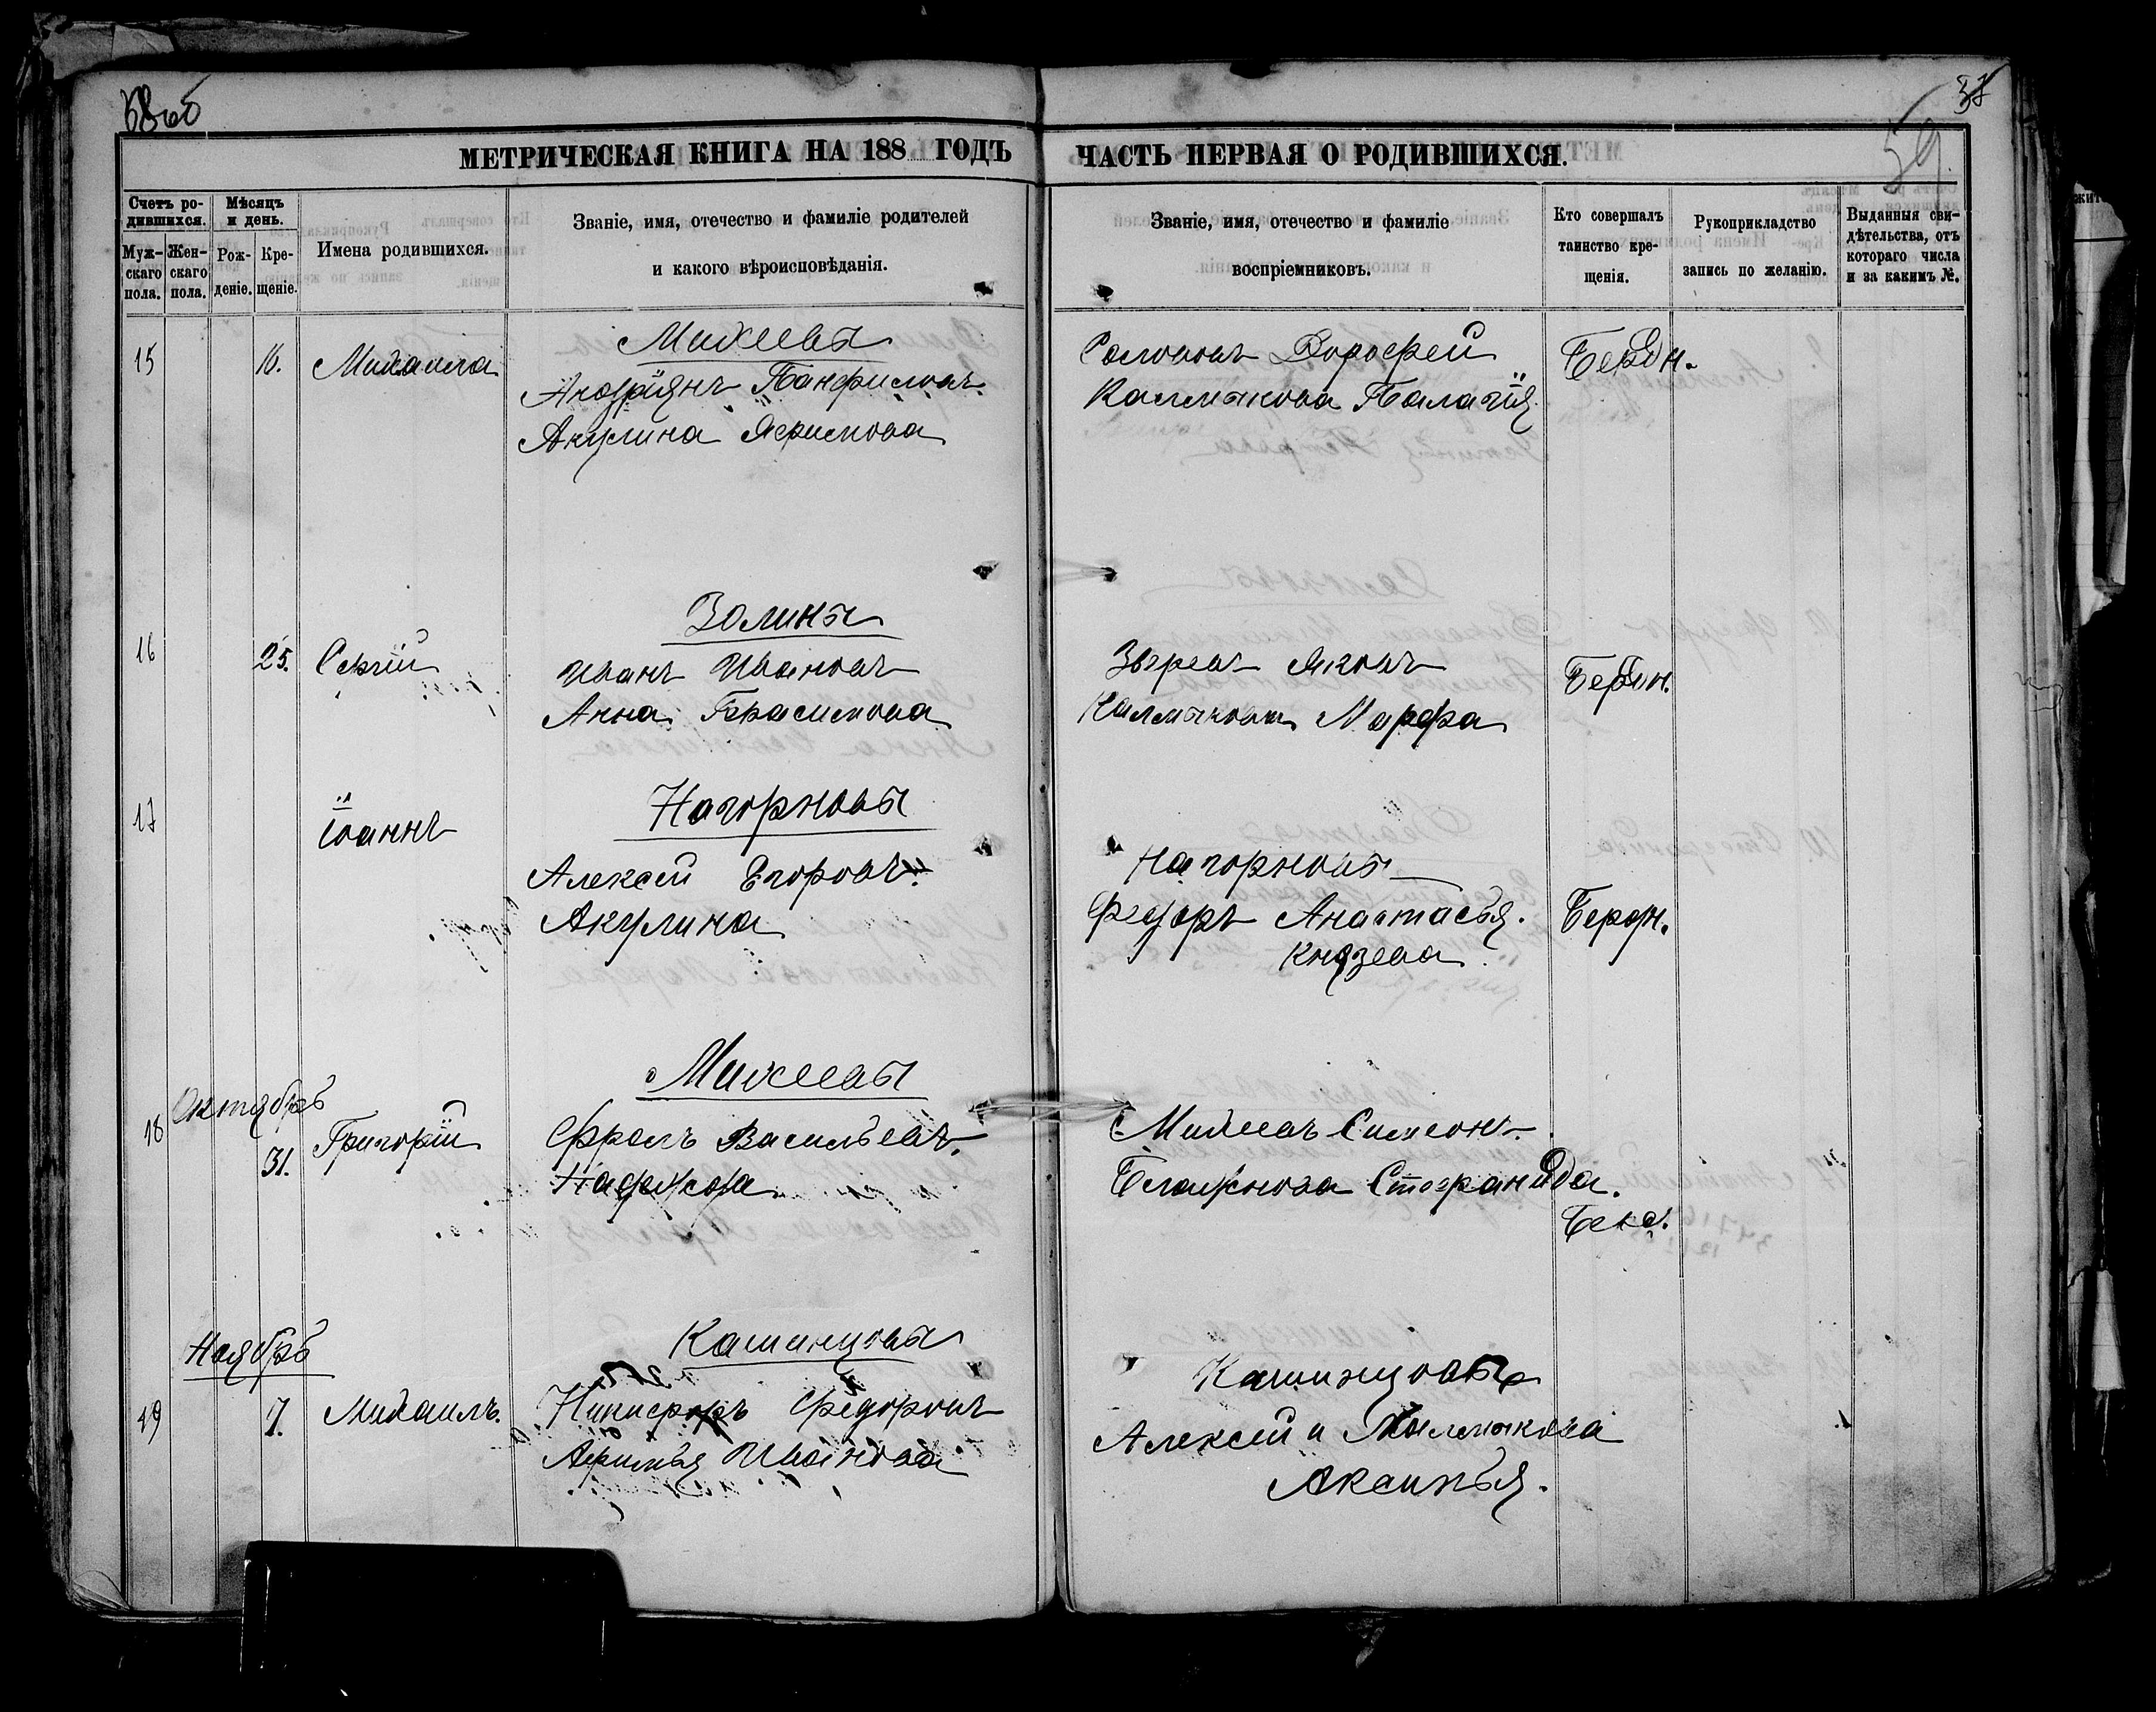 58об
37
59.
МЕТРИЧЕСКАЯ КНИГА НА 188 ГОДЪ
ЧАСТЬ ПЕРВАЯ О РОДИВШИХСЯ.
Счетъ ро-
дившихся.
Мѣсяцъ
и день.
Муж-
скаго
пола.
Жен-
скаго
пола.
Рож-
деніе.
Кре-
щеніе.
Имена родившихся.
Званіе, имя, отечество и фамиліе родителей
и какого вѣроисповѣданія.
Званіе, имя, отечество и фамиліе
воспріемниковъ.
Кто совершалъ
таинство кре-
щенія.
Рукоприкладство
запись по желанію.
Выданныя сви-
дѣтельства, отъ
котораго числа
и за какимъ №.
15 16. Михаила
Михеевы
Андріянъ Панфиловъ.
Акулина Яфимова
Соломовъ Дорофей
Калмыкова Палагія
Бердн.
16 25. Сергій
Золины
Иванъ Ивановъ
Анна Герасимова
Зверевъ Яковъ
Калмыкова Марфа
Бердн.
17 Іоаннъ
Нагорновы
Алексей Егоровъ.
Акулина
Нагорновы
Федоръ Анастасья.
Князева
Бердн.
Октябрь
18 31. Григорій
Михеевы
Фролъ Васильевъ.
Михеевъ Симеонъ.
Блажнова Стефанида.
Ноябрь
19 7. Михаилъ.
Кашинцовы
Никифоръ Федоровъ
Афимья Иванова
Кашинцовы
Алексей и Калмыкова
Аксинья.